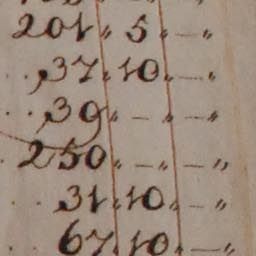 201 „ 5 „ — „
„ 37 „ 10 „ — „
„ 39 „ — „ — „
250 „ — „ — „
31 „ 10 „ — „
67 „ 10 „ — „